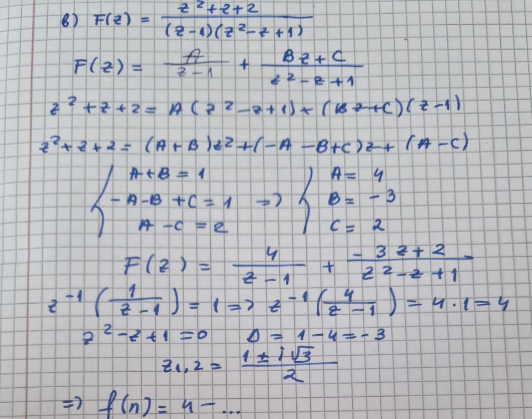 в) F(z) = (z²+z+2)/((z-1)(z²-z+1))
F(z) = A/(z-1) + (Bz+C)/(z²-z+1)
z²+z+2 = A(z²-z+1)+(Bz+C)(z-1)
z²+z+2 = (A+B)z²+(-A-B+C)z+(A-C)
{ A+B=1 { A= 4
-A-B+C=1 => B= -3
A-C=2 C= 2
F(z) = 4/(z-1) + (-3z+2)/(z²-z+1)
z⁻¹(1/(z-1)) = 1 => z⁻¹(4/(z-1)) = 4·1=4
z²-z+1=0 D=1-4=-3
z1,2 = (1±i√3)/2
=> f(n) = 4 - ...